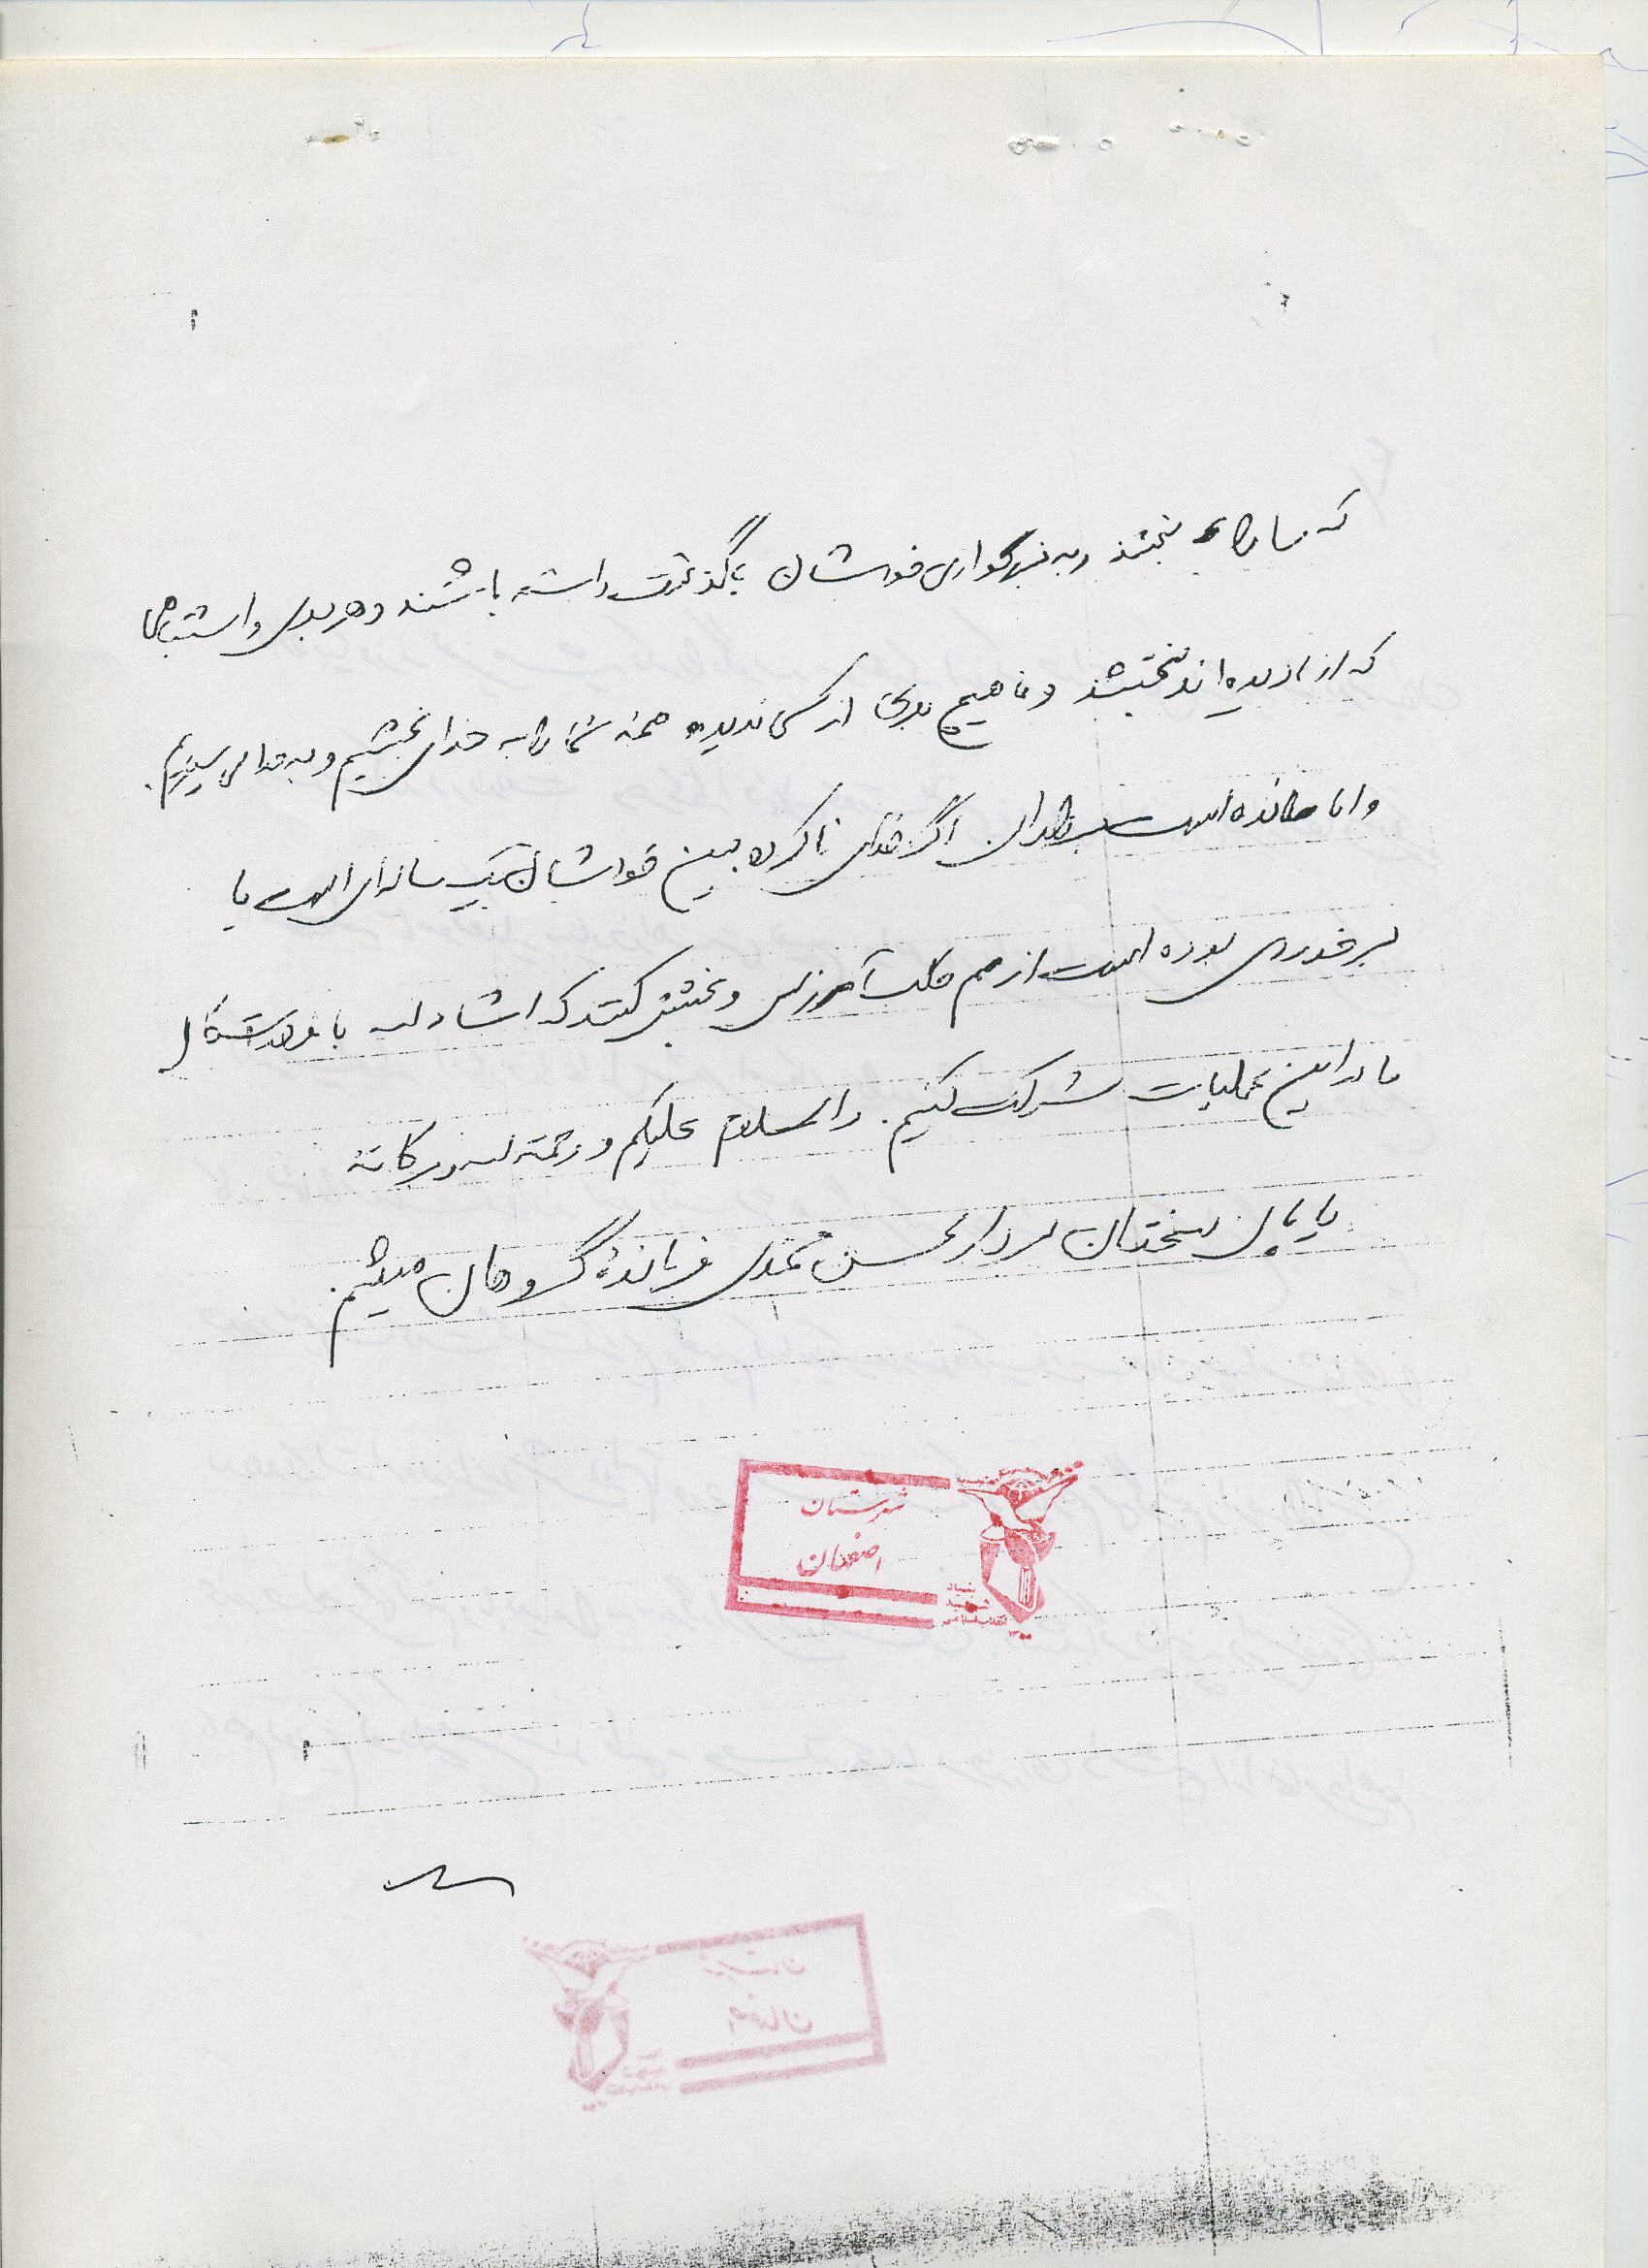 که ما را ببخشند و به بزرگواری خودشان با گذشت داشته باشند و هر بدی و اشتباهی
که از ما دیده‌اند ببخشند و ما هیچ بدی از کسی ندیده همه شما را به خدا می بخشیم و به خدا می سپاریم.
و اما مانده است برادران اگر خدای ناکرده بین خودشان یک مسأله‌ای است یا
برخوردی بوده است از هم طلب آمرزش و بخشش کنند که انشاءالله با
ما در این عملیات شرکت کنیم. والسلام علیکم و رحمة الله و برکاته
پایان سخنان سردار محسن محمدی فرمانده گروهان میثم.
شهرستان
اصفهان
بنیاد
شهید
انقلاب اسلامی